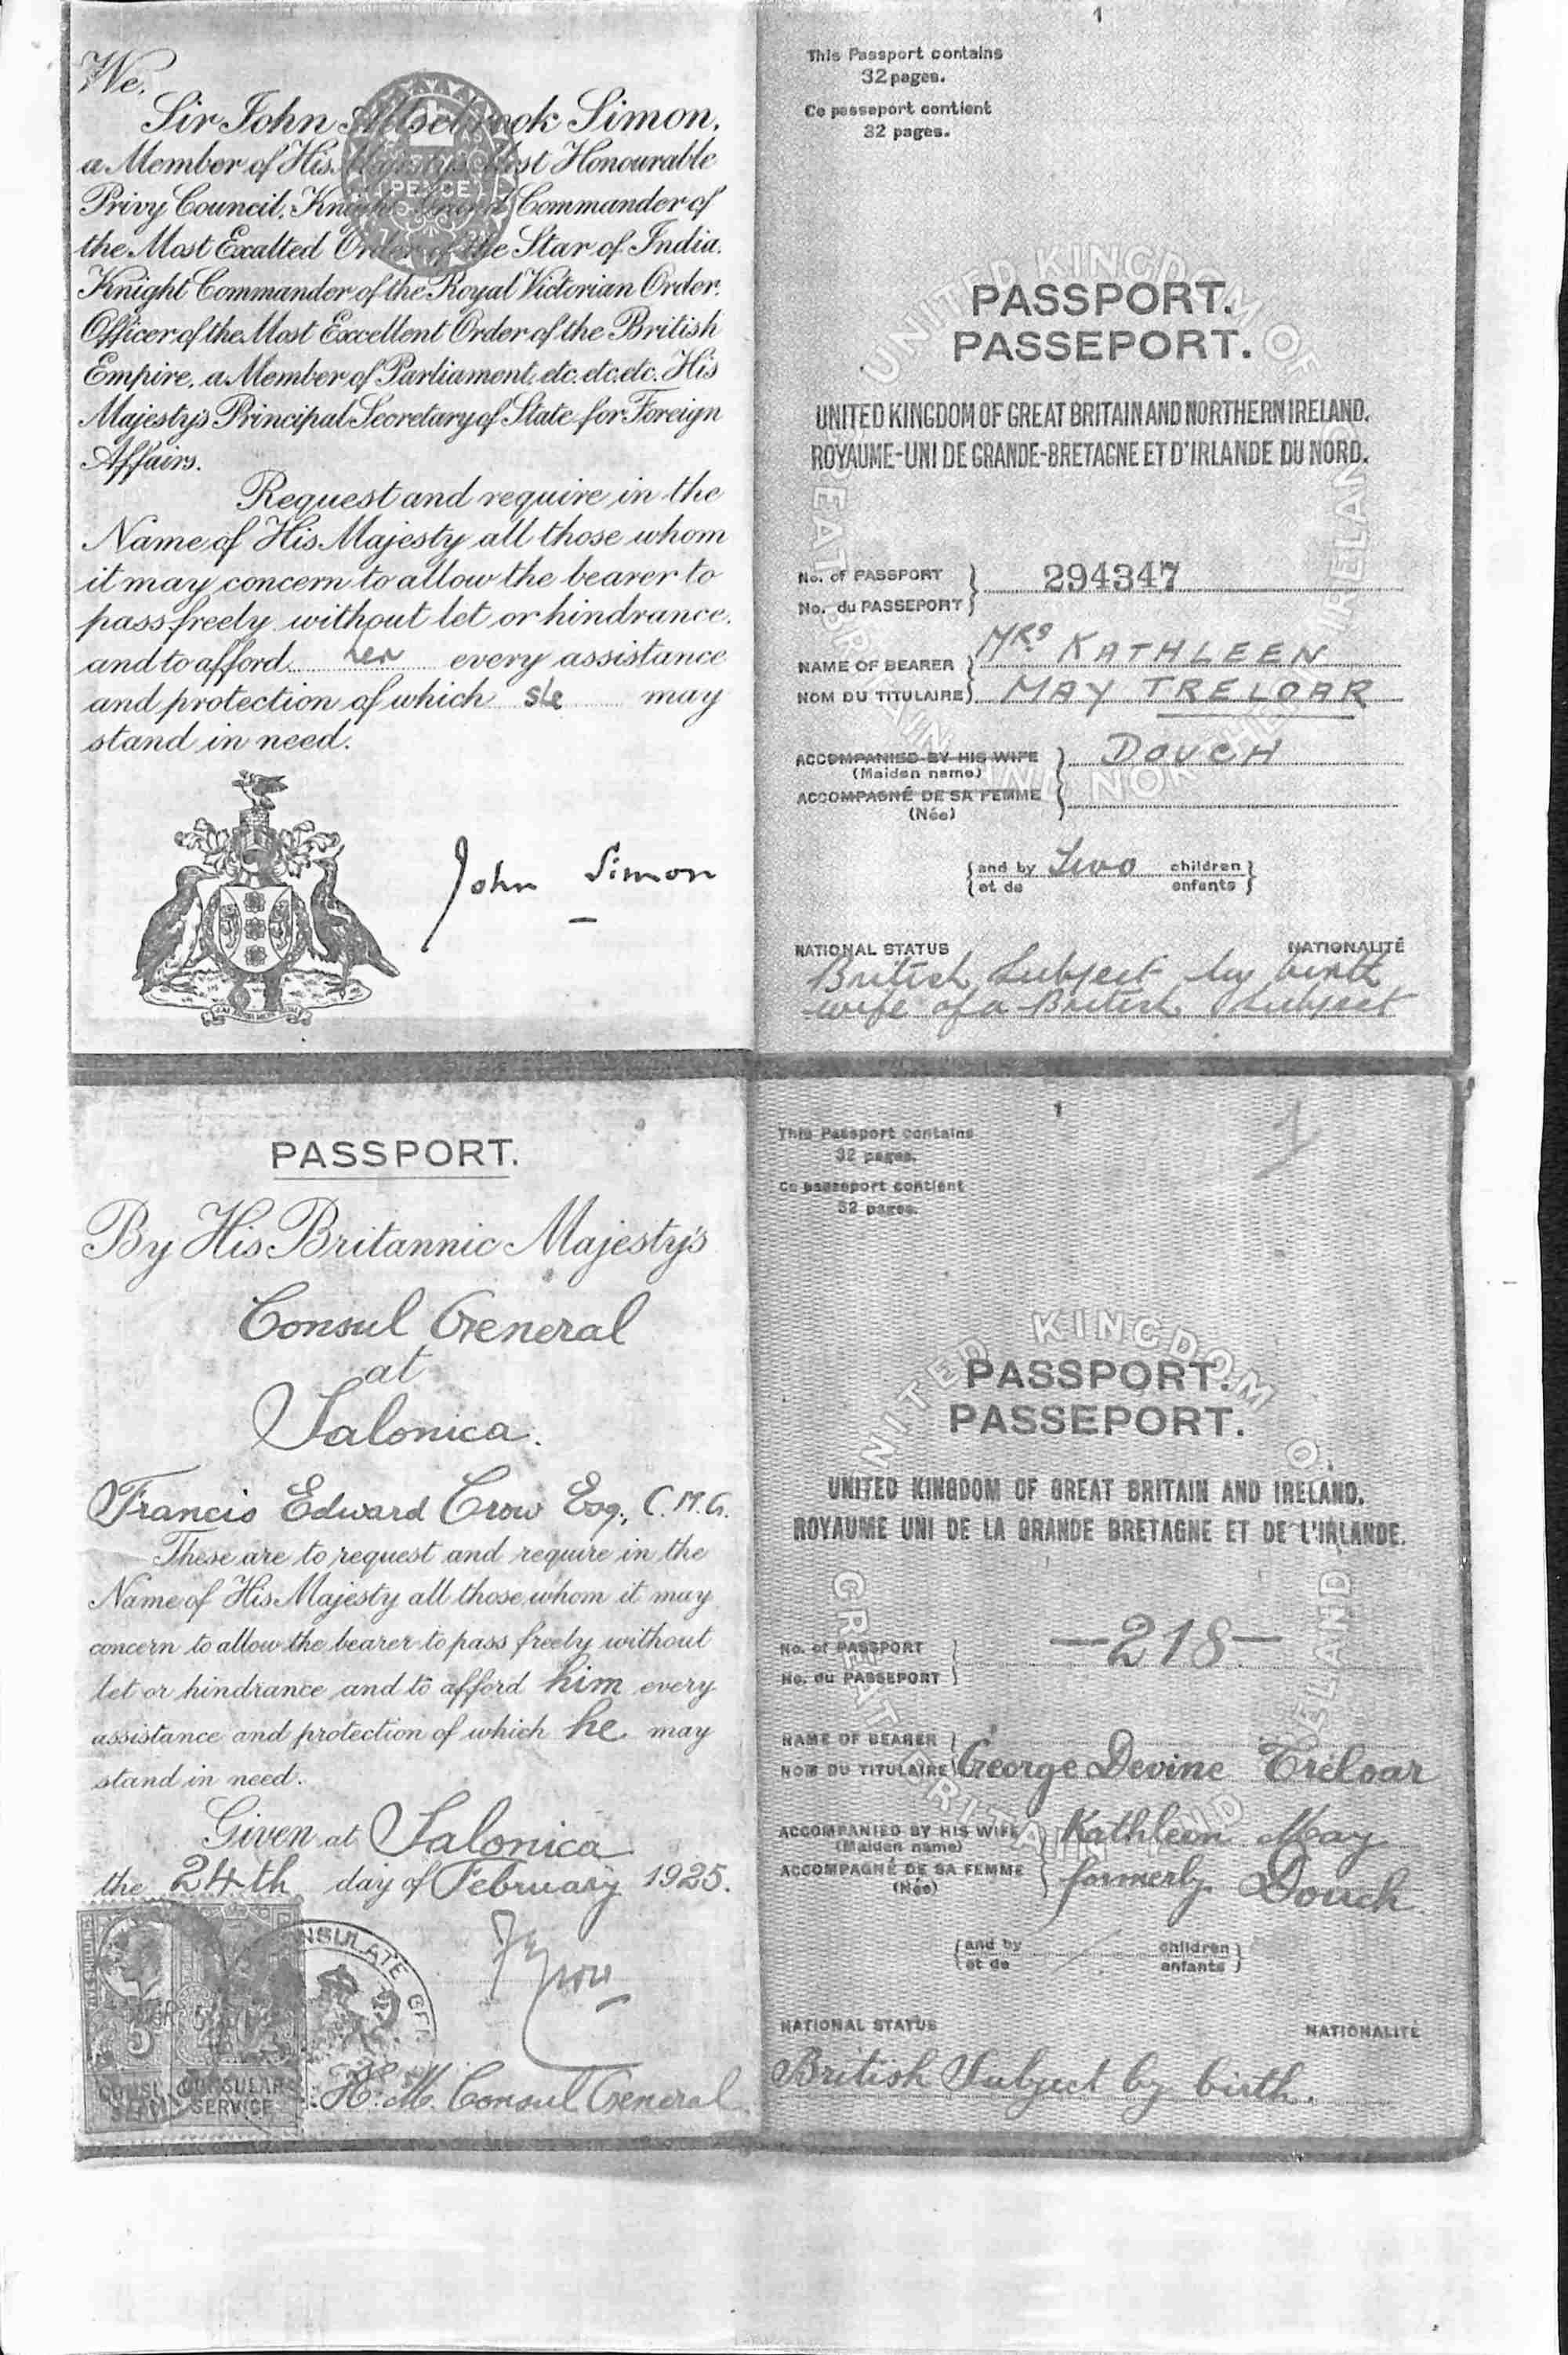 We,
Sir John Allsebrook Simon,
a Member of His Majesty's Most Honourable
Privy Council, Knight Grand Commander of
the Most Exalted Order of the Star of India,
Knight Commander of the Royal Victorian Order,
Officer of the Most Excellent Order of the British
Empire, a Member of Parliament, etc. etc. etc. His
Majesty's Principal Secretary of State for Foreign
Affairs.
PENCE
Request and require in the
Name of His Majesty all those whom
it may concern to allow the bearer to
pass freely without let or hindrance,
and to afford her every assistance
and protection of which she may
stand in need.
John Simon
1
This Passport contains
32 pages.
Ce passeport contient
32 pages.
UNITED KINGDOM OF
GREAT BRITAIN AND NORTHERN IRELAND
PASSPORT.
PASSEPORT.
UNITED KINGDOM OF GREAT BRITAIN AND NORTHERN IRELAND.
ROYAUME-UNI DE GRANDE-BRETAGNE ET D'IRLANDE DU NORD.
No. of PASSPORT
No. du PASSEPORT
294347
NAME OF BEARER MRS KATHLEEN
NOM DU TITULAIRE MAY TRELOAR
ACCOMPANIED BY HIS WIFE DOUCH
(Maiden name)
ACCOMPAGNÉ DE SA FEMME
(Née)
and by Two children
et de enfants
NATIONAL STATUS NATIONALITÉ
British Subject by birth
wife of a British Subject
PASSPORT.
By His Britannic Majesty's
Consul General
at
Salonica.
Francis Edward Crow Esq., C.M.G.
These are to request and require in the
Name of His Majesty all those whom it may
concern to allow the bearer to pass freely without
let or hindrance and to afford him every
assistance and protection of which he may
stand in need.
Given at Salonica
the 24th day of February 1925.
CONSULATE GEN
5
CONSULAR
SERVICE
F E Crow
H. M. Consul General
1
This Passport contains
32 pages.
Ce passeport contient
32 pages.
UNITED KINGDOM OF
GREAT BRITAIN AND IRELAND
PASSPORT.
PASSEPORT.
UNITED KINGDOM OF GREAT BRITAIN AND IRELAND.
ROYAUME UNI DE LA GRANDE BRETAGNE ET DE L'IRLANDE.
No. of PASSPORT
No. du PASSEPORT
-218-
NAME OF BEARER
NOM DU TITULAIRE George Devine Treloar
ACCOMPANIED BY HIS WIFE Kathleen May
(Maiden name)
ACCOMPAGNÉ DE SA FEMME formerly Douch
(Née)
and by / children
et de enfants
NATIONAL STATUS NATIONALITÉ
British Subject by birth.